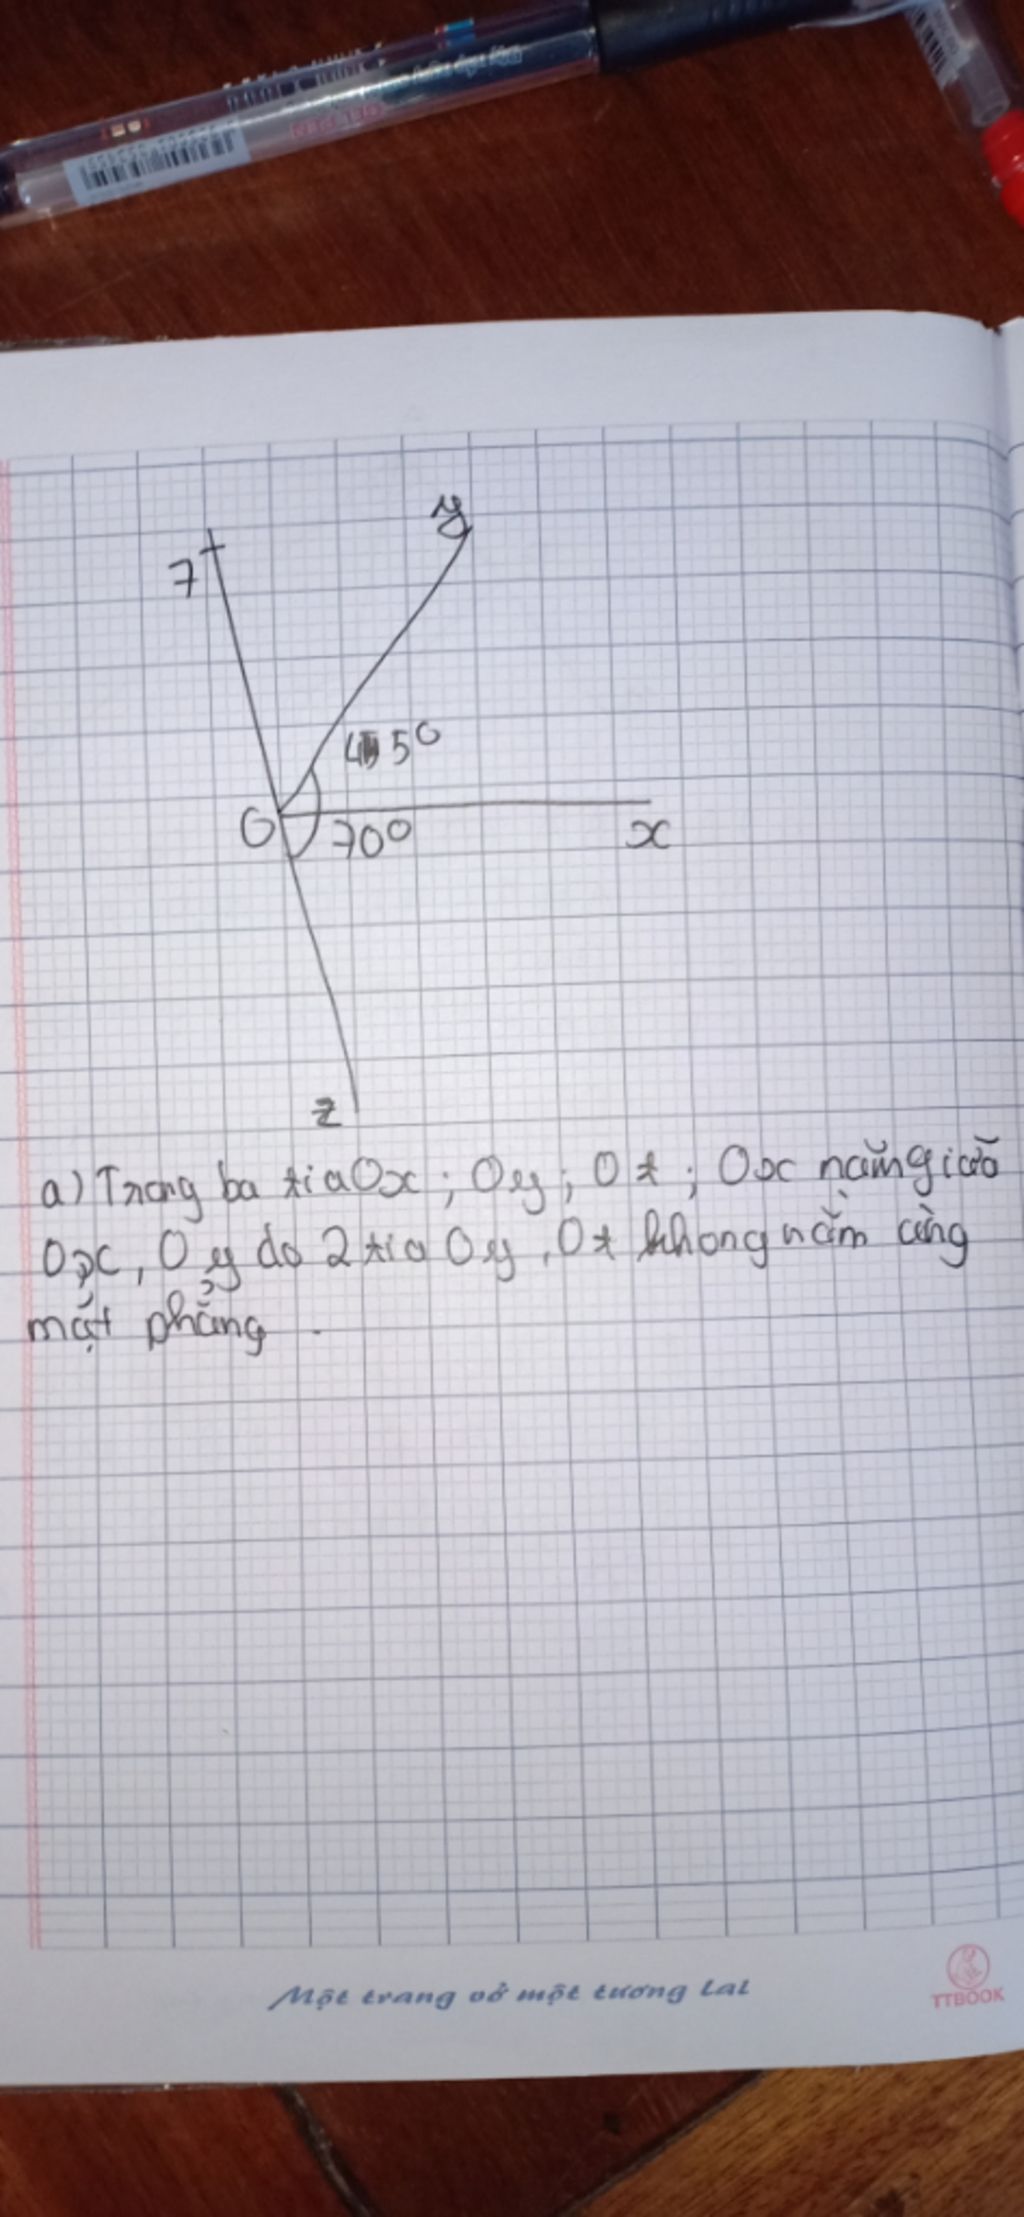 GEL PEN
y
7
45°
O
70°
x
z
a) Trong ba tia Ox ; Oy ; Ot ; Ox nằm giữa
Ox, Oy do 2 tia Oy, Ot không nằm cùng
mặt phẳng.
Một trang vở một tương lai
TTBOOK